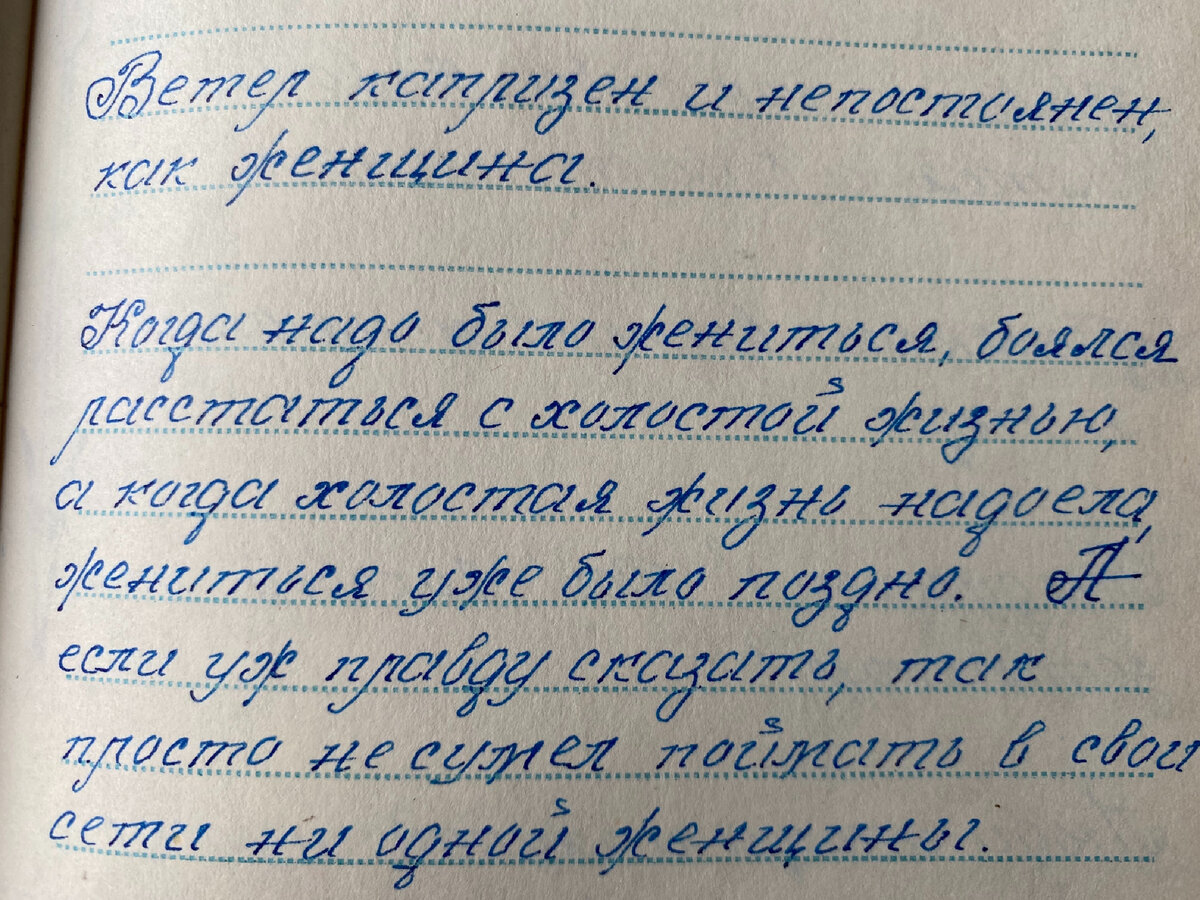 Ветер капризен и непостоянен,
как женщина.
Когда надо было жениться, боялся
расстаться с холостой жизнью,
а когда холостая жизнь надоела,
жениться уже было поздно. А
если уж правду сказать, так
просто не сумел поймать в свои
сети ни одной женщины.